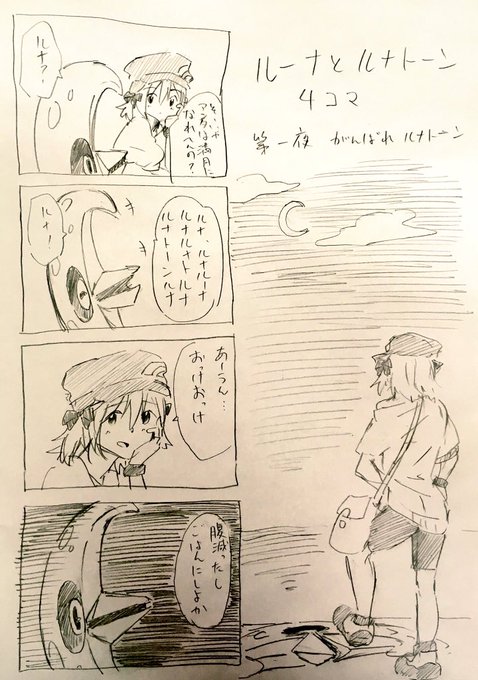 ルーナとルナトーン
4コマ
第一夜 がんばれ ルナトーン
そいや
アンタは満月に
なれへんの?
ルナ?
ルナ、ルナルーナ
ルナルナトルナ
ルナトーンルナ
ルナ!
あーうん…
おっけおっけ
腹減ったし
ごはんにしよか